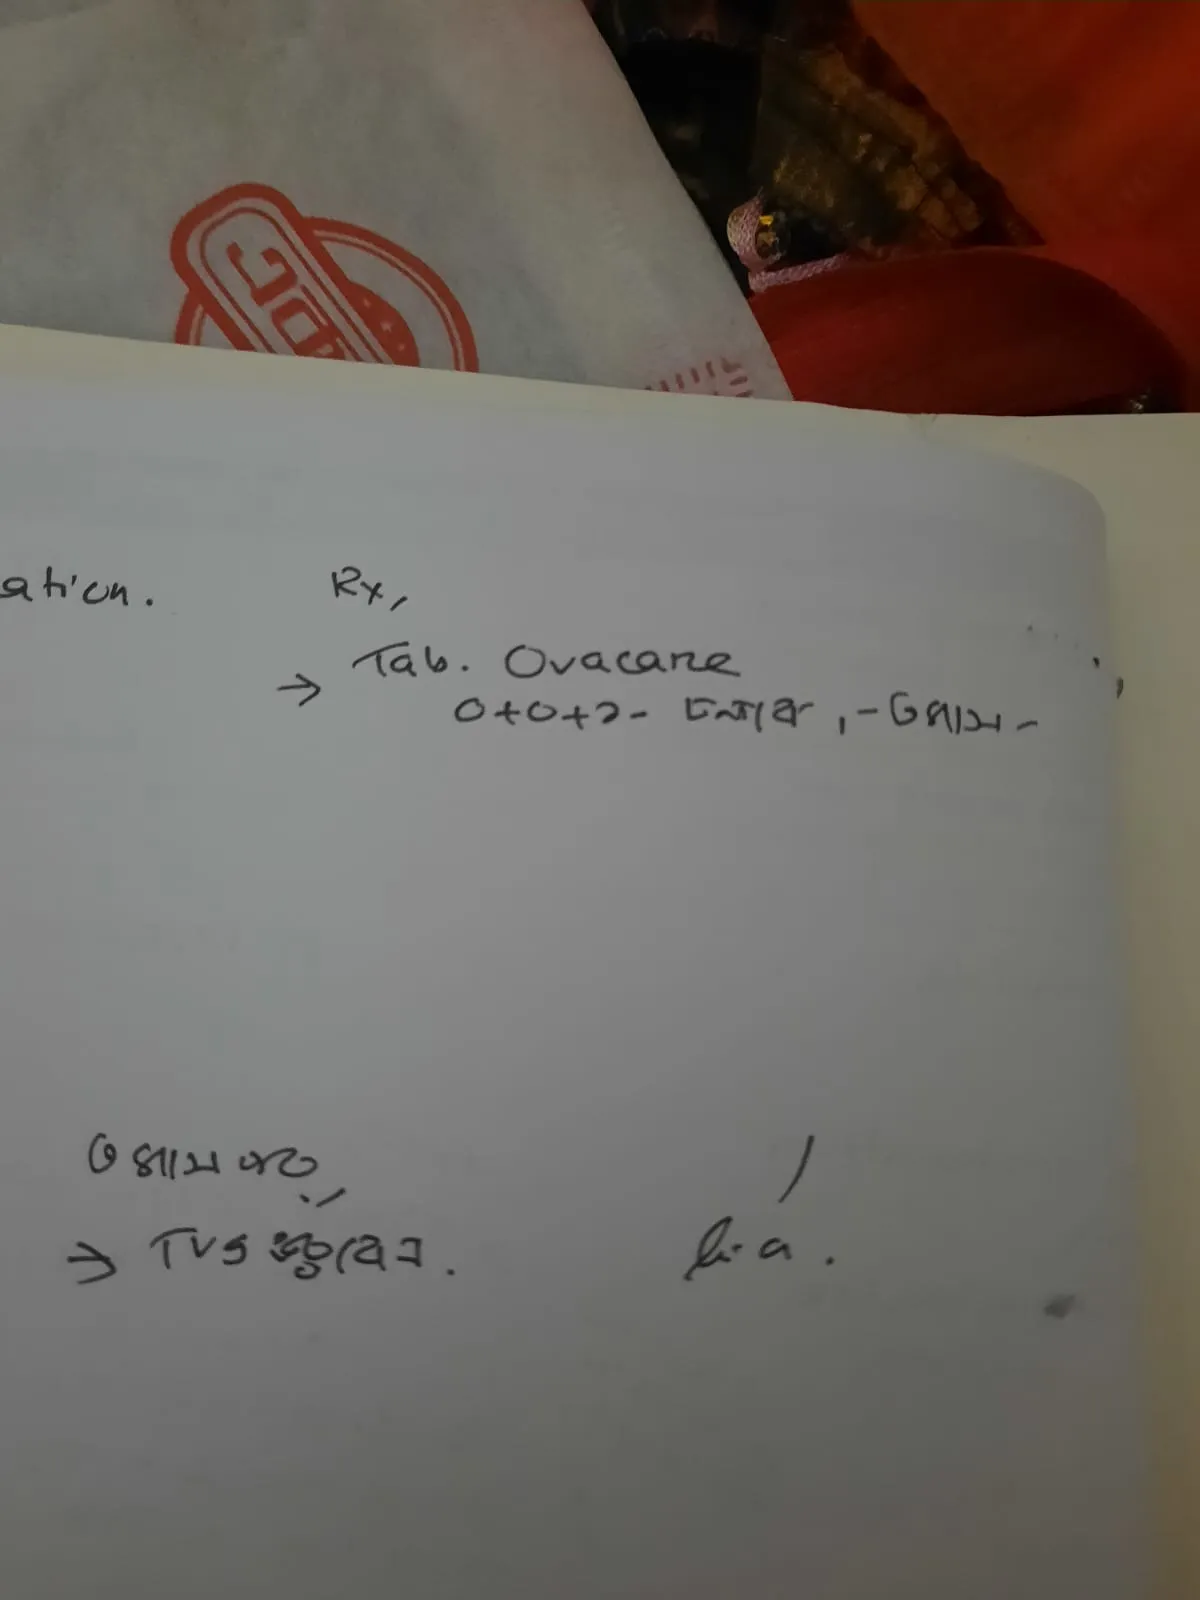 ation.
Rx,
→ Tab. Ovacare
0+0+১- -৩ মাস-
৩ মাস পর,
→ TVS করাবেন.